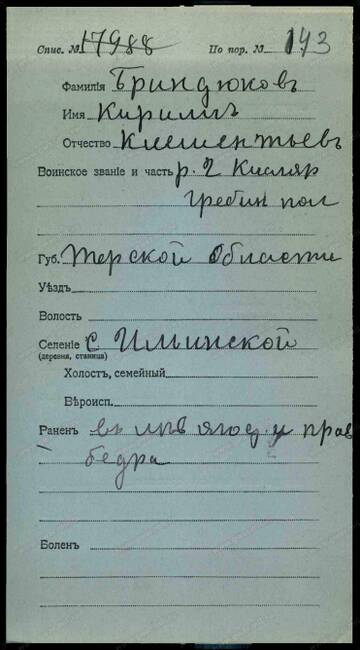 Спис. № 17988 По пор. № 193
Фамилія Бриндюковъ
Имя Кириллъ
Отчество Клементьевъ
Воинское званіе и часть р. 2 Кизляр
Гребин пол
Губ. Терской Области
Уѣздъ
Волость
Селеніе С Ильинской
(деревня, станица)
Холостъ, семейный
Вѣроисп.
Раненъ въ лѣв ягод. и прав
бедра
Боленъ